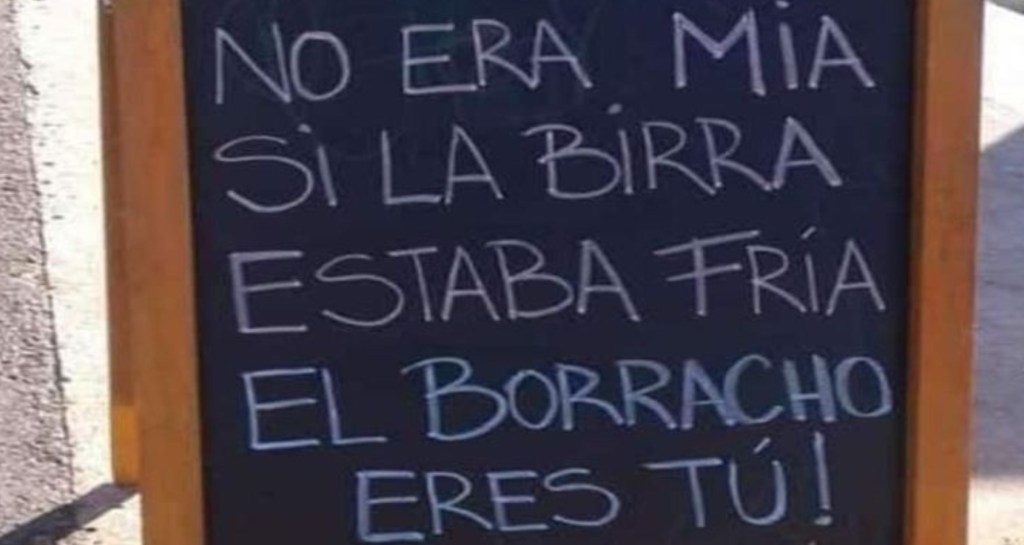 NO ERA MiA
Si LA BiRRA
ESTABA FRíA
EL BORRACHO
ERES TÚ!